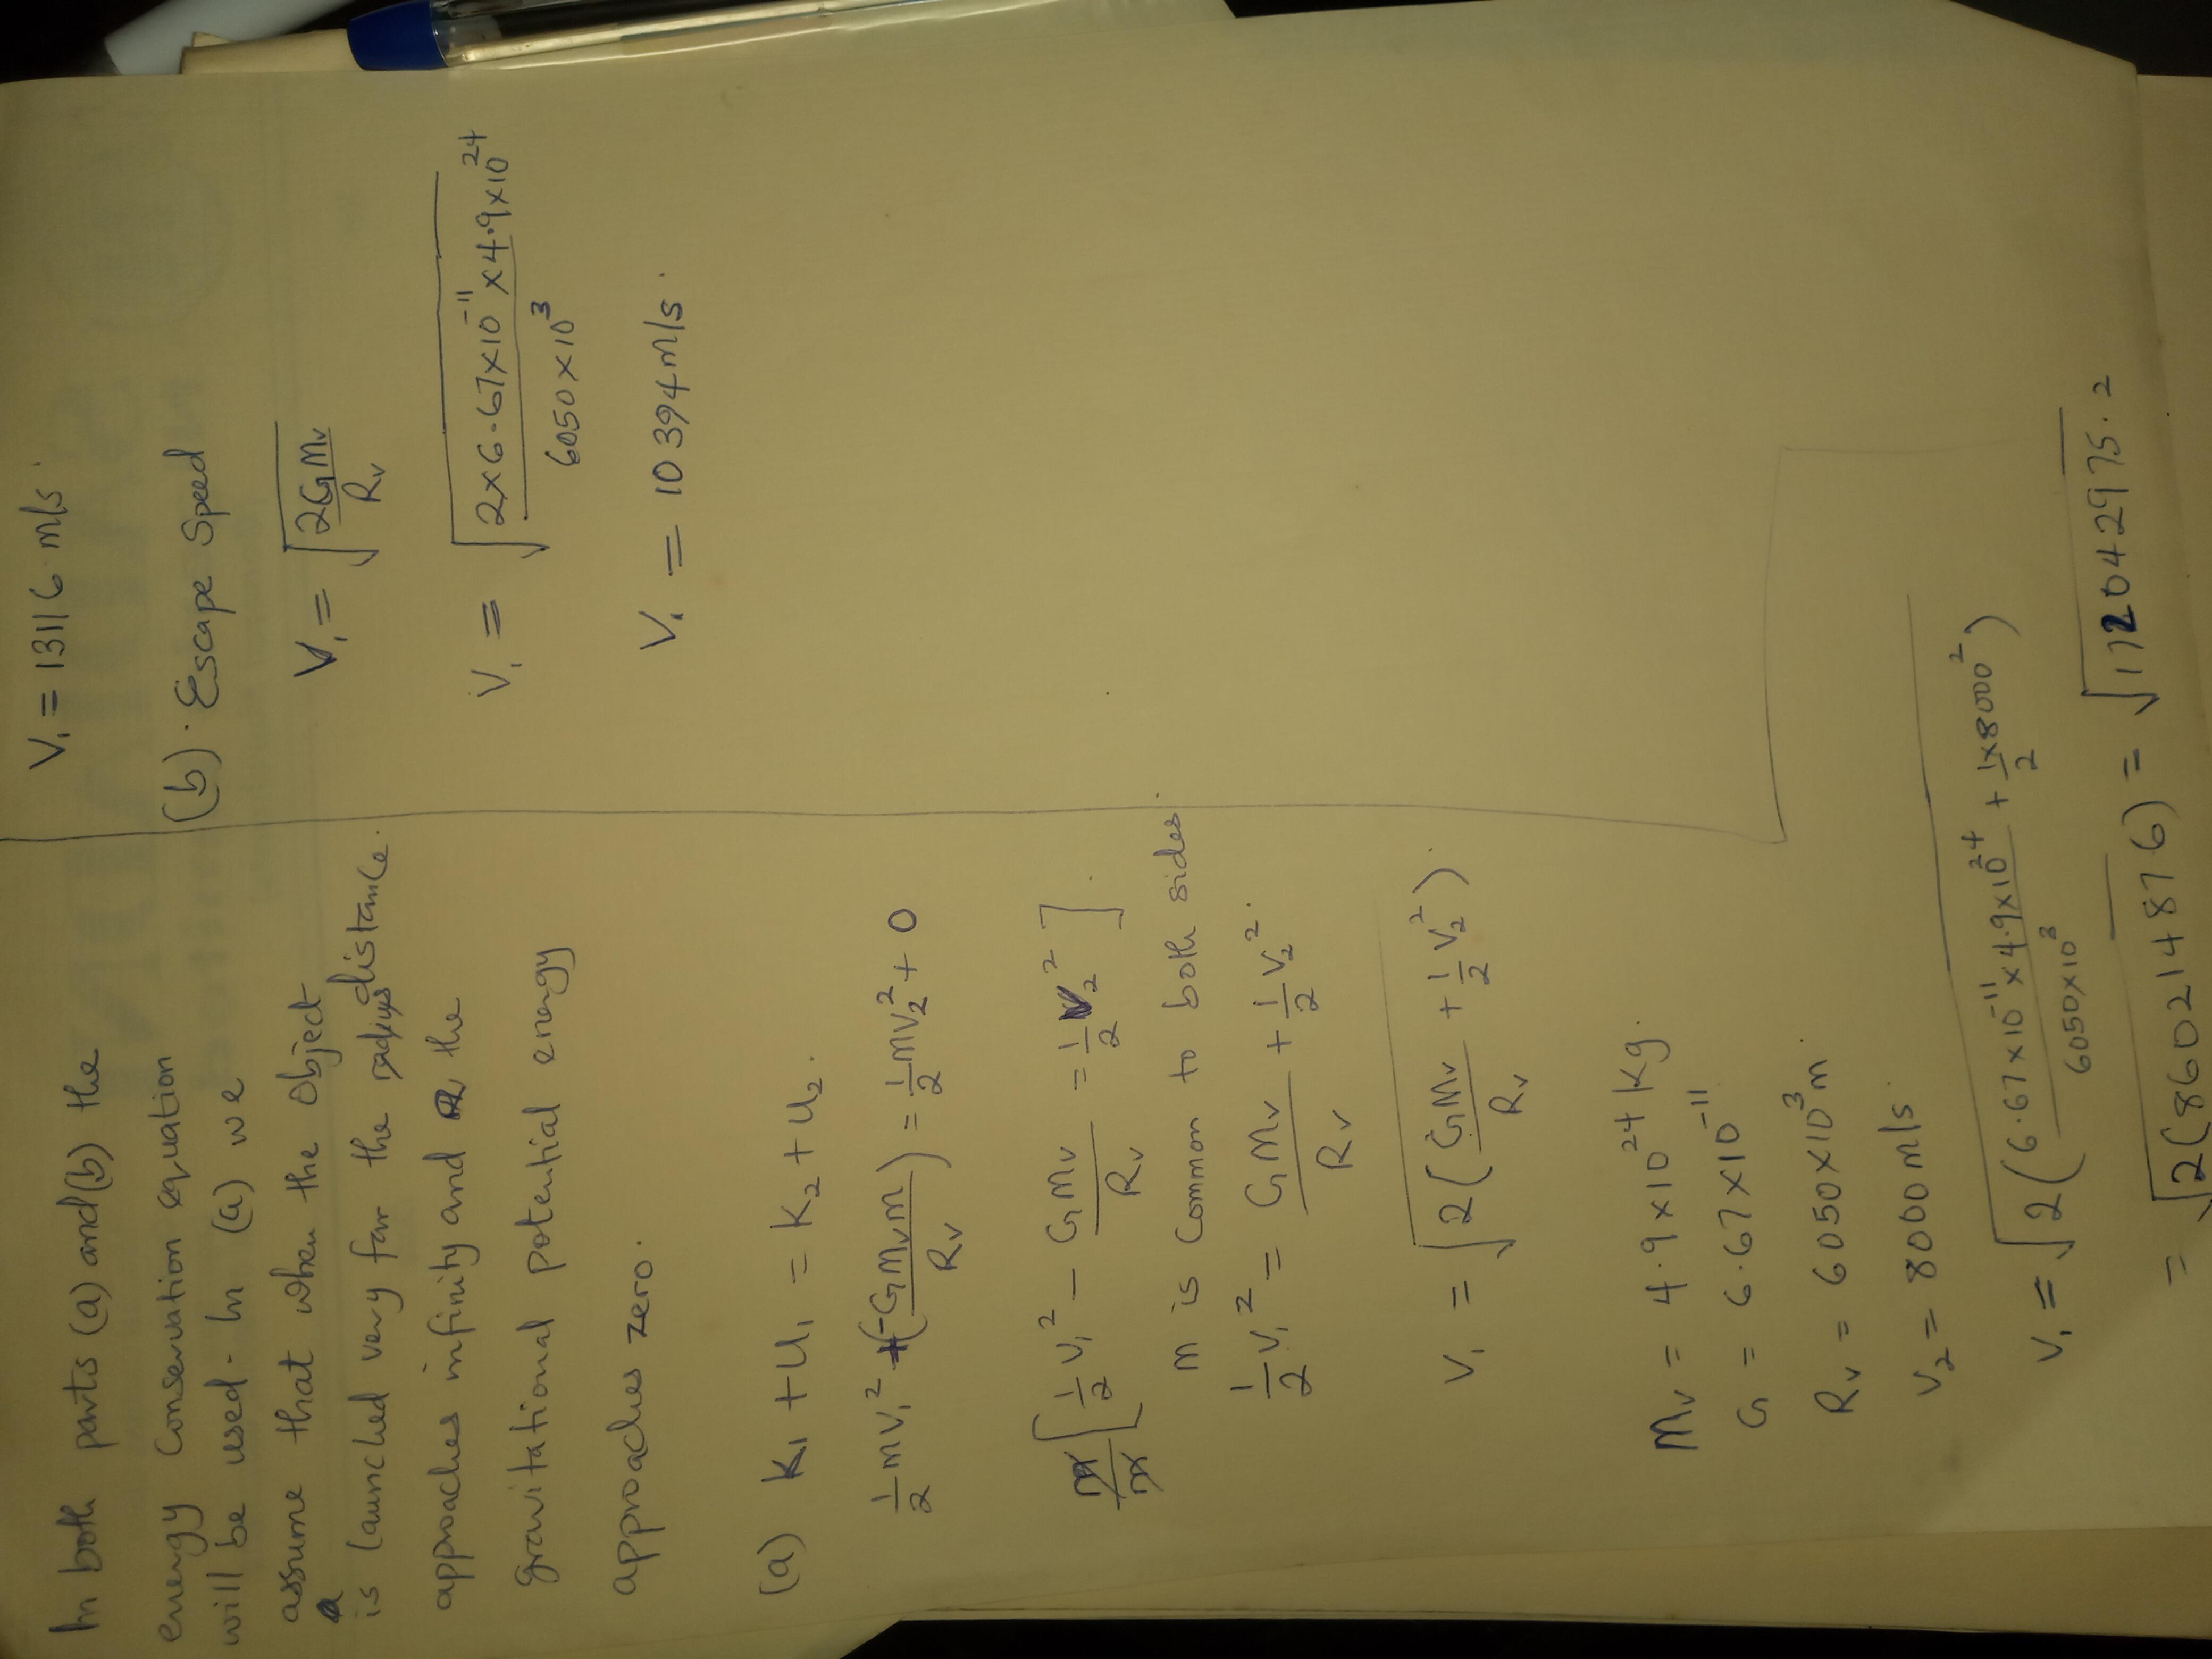 In both parts (a) and (b) the
energy Conservation equation
will be used. In (a) we
assume that when the object
is launched very far the distance.
approaches infinity and the
gravitational potential energy
approaches zero.
(a) K₁ + U₁ = K₂ + U₂.
½mv₁² + (-GMvm/Rv) = ½mv₂² + 0
m/m [½v₁² - GMv/Rv = ½v₂²].
m is common to both sides
½v₁² = GMv/Rv + ½v₂².
V₁ = √(2(GMv/Rv + ½v₂²)).
Mv = 4.9 x 10²⁴ kg.
G = 6.67 x 10⁻¹¹
Rv = 6050 x 10³ m.
V₂ = 8000 m/s.
V₁ = √(2(6.67 x 10⁻¹¹ x 4.9 x 10²⁴/6050 x 10³ + ½ x 8000²))
= √(2(860214876)) = √(172042975.2)
V₁ = 13116 m/s.
(b). Escape Speed
V₁ = √(2GMv/Rv)
V₁ = √(2 x 6.67 x 10⁻¹¹ x 4.9 x 10²⁴/6050 x 10³)
V₁ = 10394 m/s.